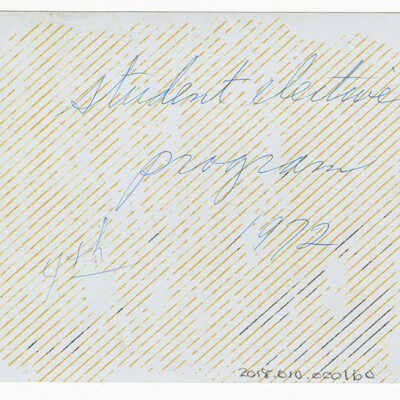 student elective
program
4th 1972
2018.010.000160